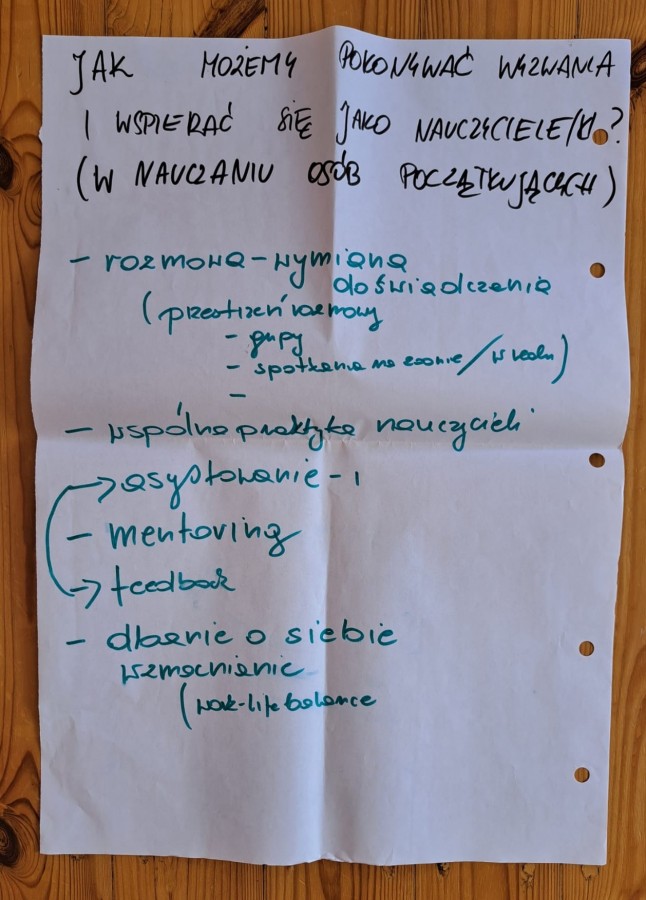 JAK MOŻEMY POKONYWAĆ WYZWANIA
I WSPIERAĆ SIĘ JAKO NAUCZYCIELE/KI?
(W NAUCZANIU OSÓB POCZĄTKUJĄCYCH)
- rozmowa - wymiana
doświadczenia
(przestrzeń rozmowy
- grupy
- spotkania na zoomie / w realu)
-
- wspólna praktyka nauczycieli
→ asystowanie - i
- mentoring
→ feedback
- dbanie o siebie
wzmacnianie
(work-life balance